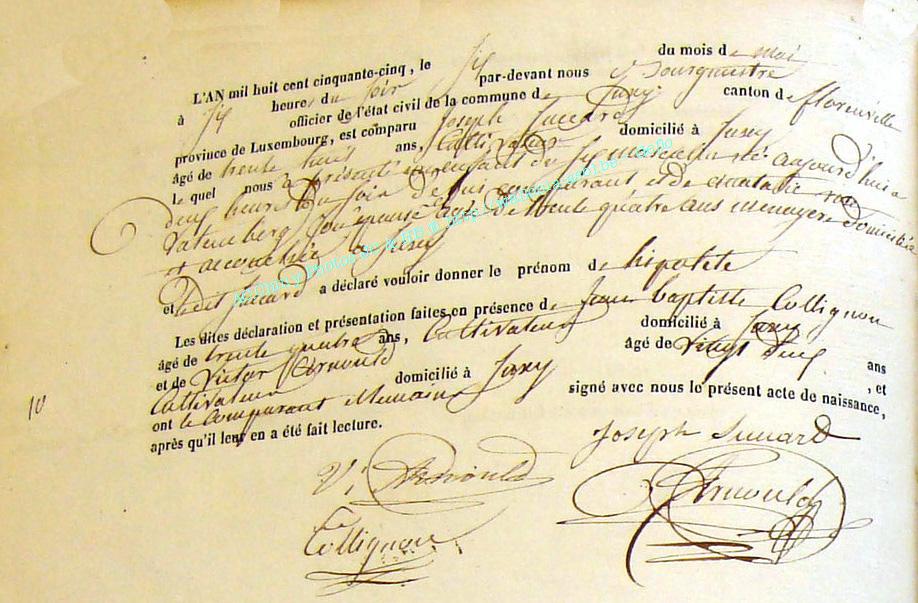 L'AN mil huit cent cinquante-cinq, le Six du mois de mai
à Six heures du soir par-devant nous Bourgmestre
officier de l'état civil de la commune de Jusey canton de florenville
province de Luxembourg, est comparu Joseph
âgé de trente huit ans, Cultivateur domicilié à Jusey
le quel nous à présenté un enfant du Sexe masculin né aujourd'hui a
deux heures du soir de lui comparant et de
Vatemberg Son épouse agée de trente quatre ans menagere domiciliée
et accouchée a Jusey
et ledit a déclaré vouloir donner le prénom de hipolete
Les dites déclaration et présentation faites en présence de Jean baptiste Collignon
âgé de trente quatre ans, Cultivateur domicilié à Jusey
et de Victor Arnould âgé de Vingt ans
Cultivateur domicilié à Jusey , et
ont le Comparant et temoins signé avec nous le présent acte de naissance,
après qu'il leur en a été fait lecture.
10
Joseph
V. Arnould Arnould
Collignon